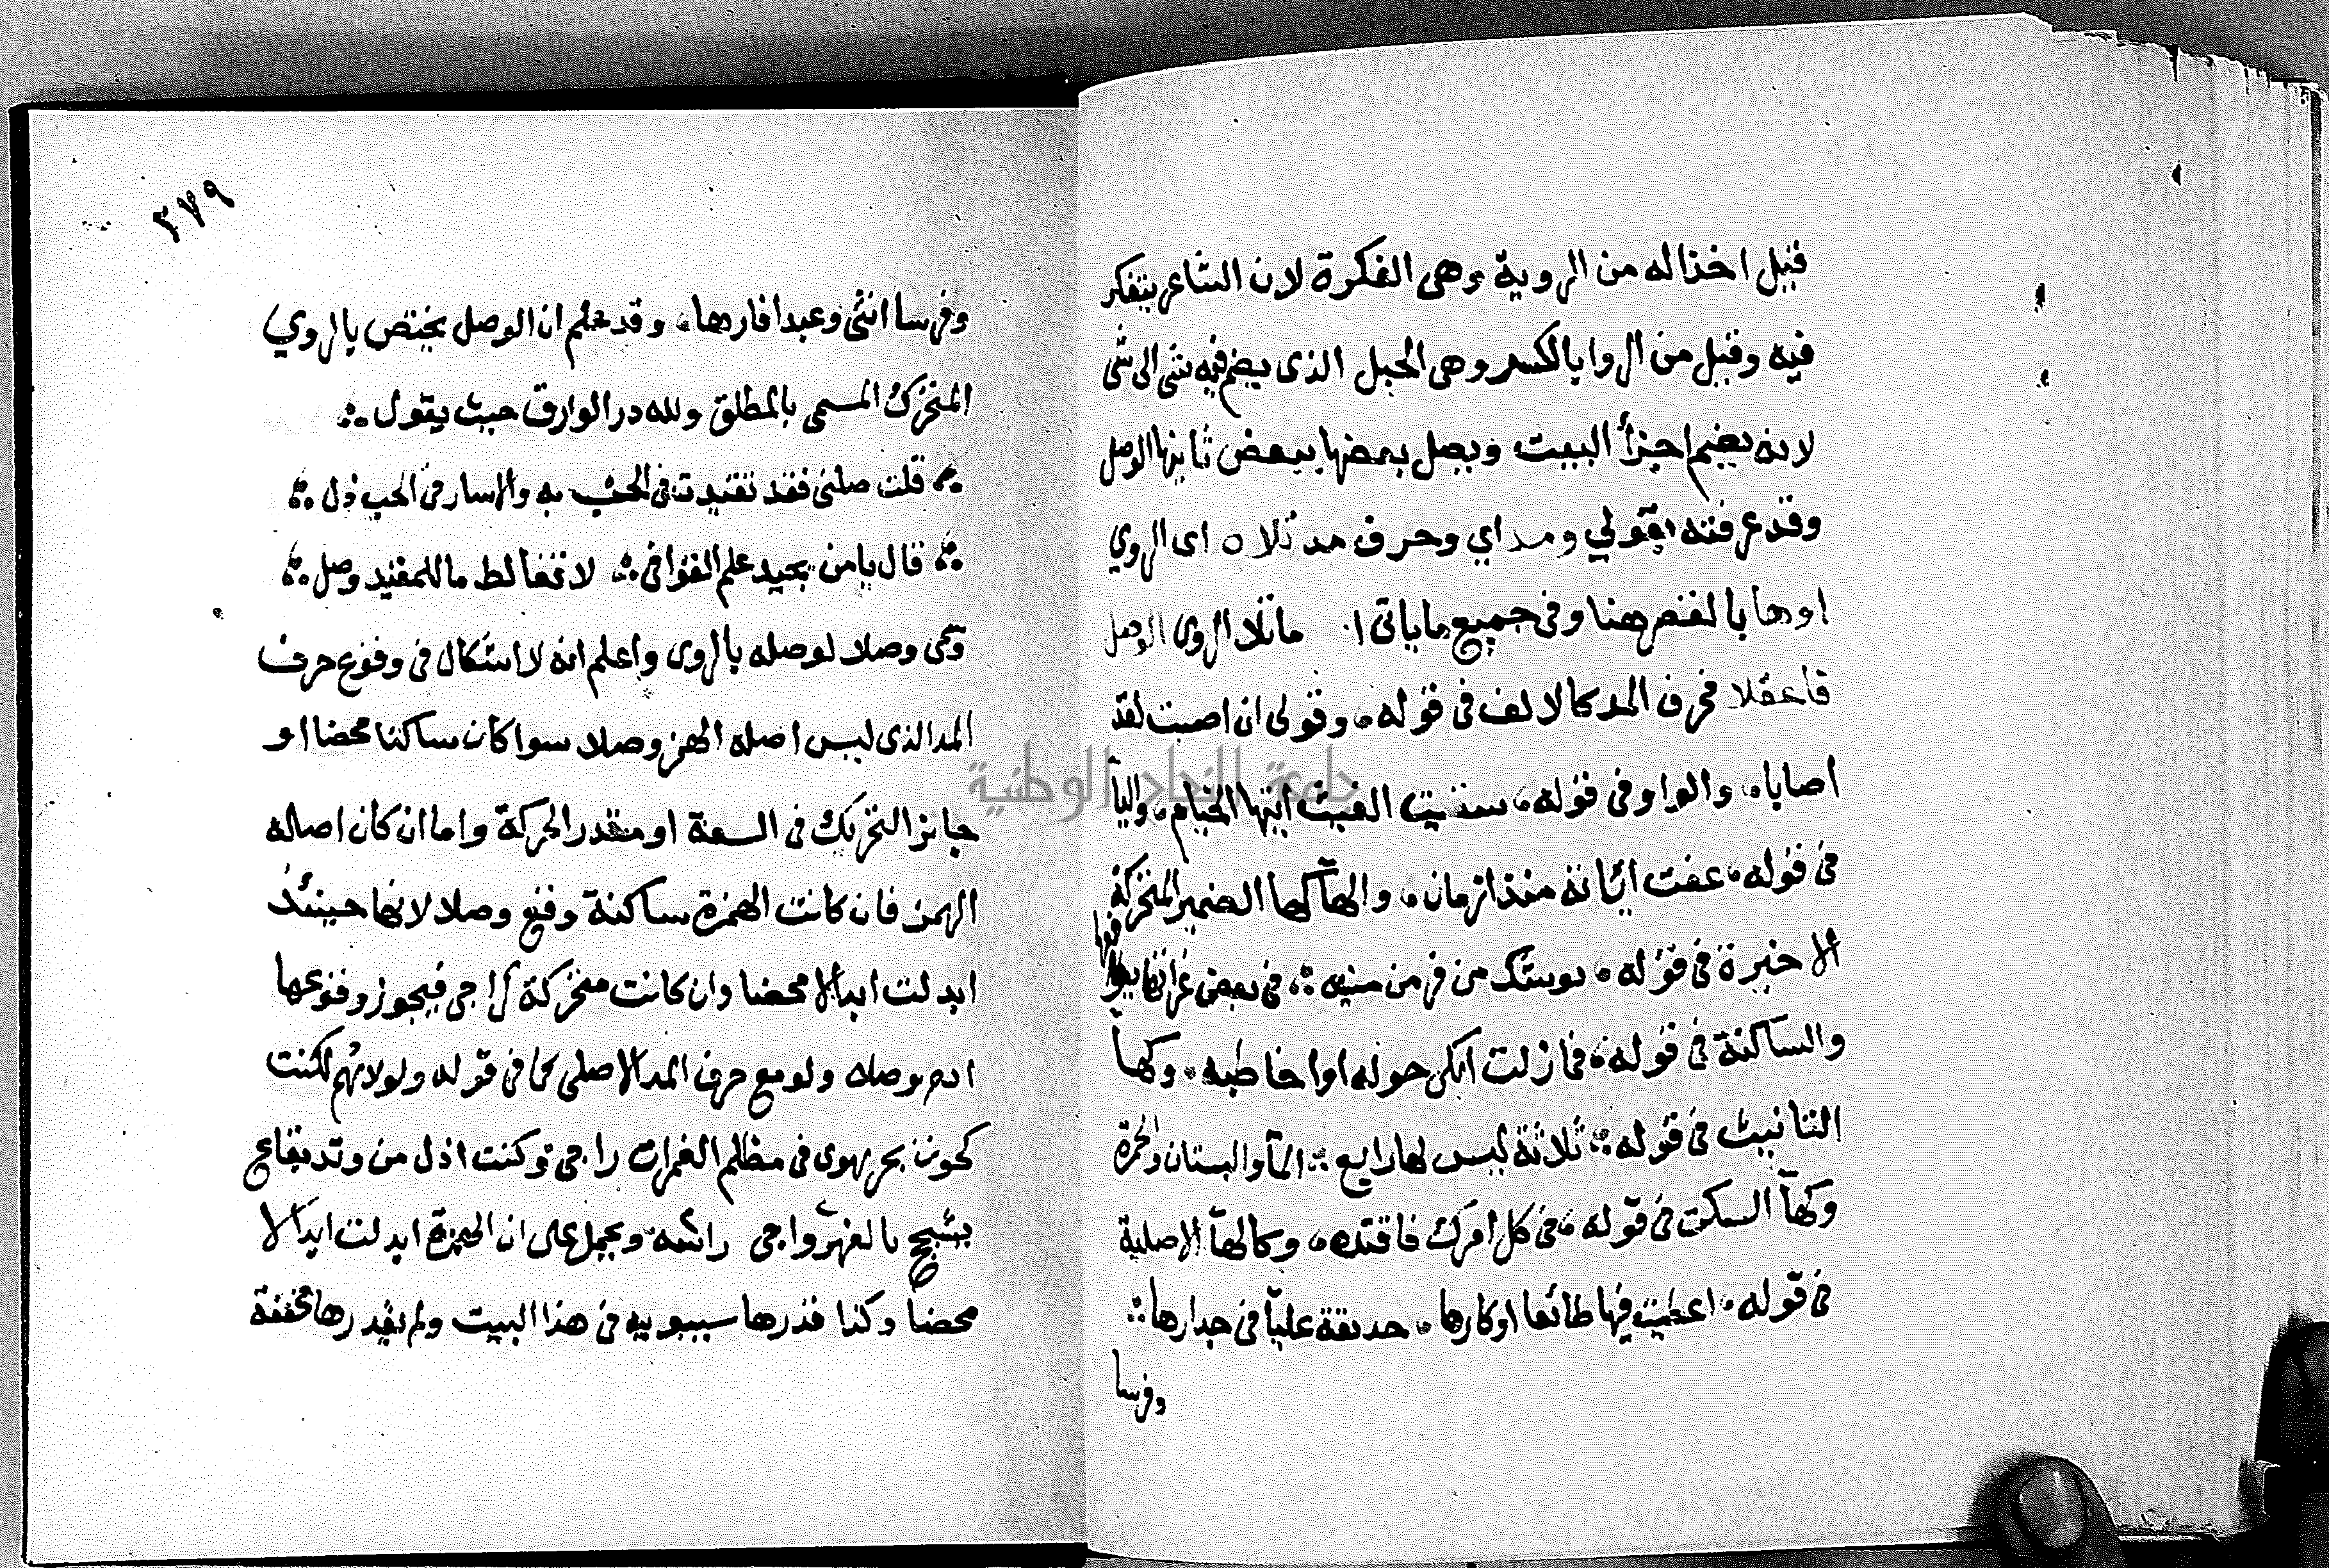 قيل اخذا له من الروية وهى الفكرة لان الشاعر يتفكر
فيه وقيل من الروا بالكسر وهى الحبل الذى يضم فيه شى الى شى
لانه يضم اجزأ البيت ويصل بعضها ببعض ثانيها الوصل
وقد عرفته بقولي ومداي وحرف مد تلاه اى الروي
اوها بالقصر هنا وفى جميع ما ياتى ما تلا الروى الوصل
فاعقلا فحرف المد كالالف فى قوله، وقولى ان اصبت لقد
اصابا، والواو فى قوله، سقيت الغيث ايتها الخيام، واليأ
فى قوله، عفت اياته منذ ازمان، والهآ كها الضمير المتحركة
الاخيرة فى قوله، يوشك من فر من منيته ؞ فى بعض غراته يوافقها
والساكنة فى قوله، فمازلت ابكى حوله اواخاطبه، وكهآ
التانيث فى قوله ؞ ثلاثة ليس لها رابع ؞ المآ والبستان والخمرة
وكهآ السكت فى قوله، فى كل امرك فاقتده، وكالهآ الاصلية
فى قوله، اعطيت فيها طائعا اوكارها، حديقة غلبآ فى جدارها ؞
وفرسا
٣٧٩
وفرسا انثى وعبدا فارها، وقد علم ان الوصل يختص بالروي
المتحرك المسمى بالمطلق ولله در الوارق حيث يقول ؞
؞ قلت صلنى فقد تقيدت فى الحب به والاسار فى الحب ذل ؞
؞ قال يا من يجيد علم القوافى ؞ لا تغالط ما للمقيد وصل ؞
وسمى وصلا لوصله بالروى واعلم انه لا اشكال فى وقوع حرف
المد الذى ليس اصله الهمز وصلا سوا كان ساكنا محضا او
جايز التحريك فى السعة او مقدر الحركة واما ان كان اصله
الهمز فان كانت الهمزة ساكنة وقع وصلا لانها حينئذ
ابدلت ابدالا محضا وان كانت متحركة كراجى فيجوز وقوعها
ولو مع حرف المد الاصلى كما فى قوله ولولاهم لكنت
كحوت بحر يهوى فى مظلم الغمرات راجى وكنت اذل من وتد بقاع
يشجج بالفهر واجى راسه ويحمل على ان الهمزة ابدلت ابدالا
محضا وكذا قدرها سيبويه فى هذا البيت ولم يقدرها مخففة
جامعة النجاح الوطنية